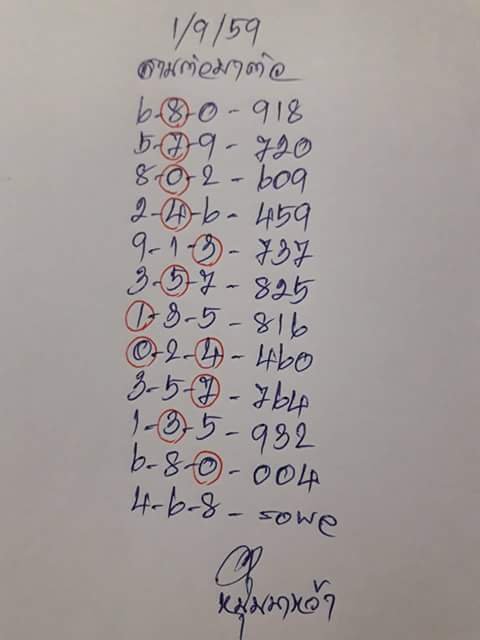 1/9/59
สามต่อมาต่อ
6-8-0-918
5-7-9-720
8-0-2-609
2-4-6-459
9-1-3-737
3-5-7-825
1-3-5-816
0-2-4-460
3-5-7-764
1-3-5-932
6-8-0-004
4-6-8-รอผล
หมุ่มมาหว้า